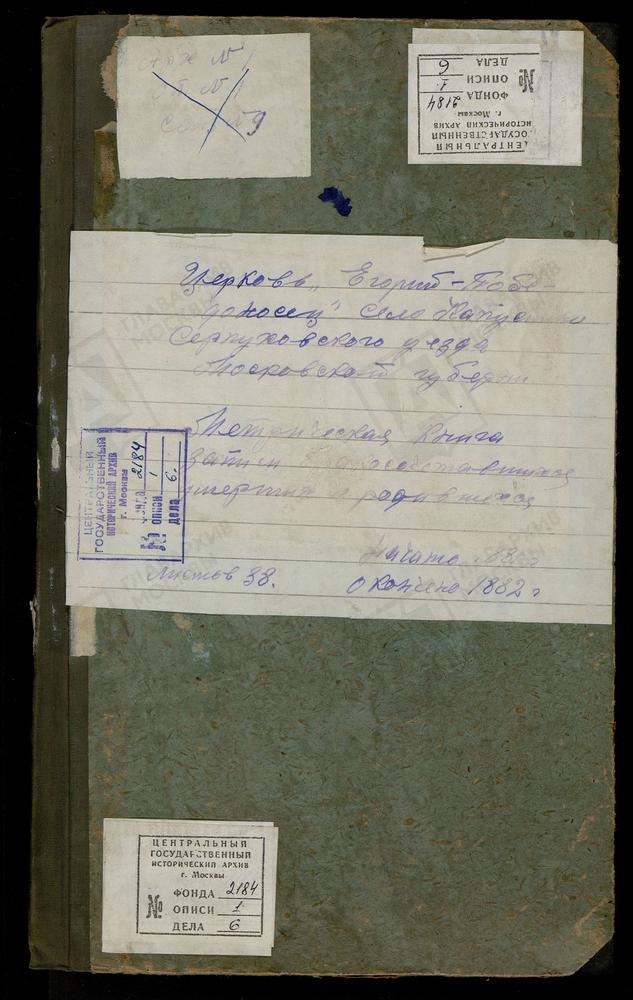 Арх №1
Оп №1
Св. №9
ЦЕНТРАЛЬНЫЙ
ГОСУДАРСТВЕННЫЙ
ИСТОРИЧЕСКИЙ АРХИВ
г. Москвы
№ ФОНДА 2184
ОПИСИ 1
ДЕЛА 6
Церковь „Егорий-Побе-
доносец" село Капустино
Серпуховского уезда
Московской губернии
Метрическая книга
записи бракосочетавшихся
умерших и родившихся
Начато
Листов 38.
Окончено 1882 г
ЦЕНТРАЛЬНЫЙ
ГОСУДАРСТВЕННЫЙ
ИСТОРИЧЕСКИЙ АРХИВ
г. Москвы
№ фонда 2184
описи 1
дела 6.
ЦЕНТРАЛЬНЫЙ
ГОСУДАРСТВЕННЫЙ
ИСТОРИЧЕСКИЙ АРХИВ
г. Москвы
№ ФОНДА 2184
ОПИСИ 1
ДЕЛА 6